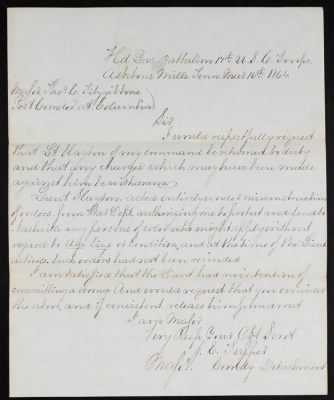 Hd Qrs Battalion 17th U. S. C. Troops
Ashbons Mills Tenn Mar 10th 1864
Major Thos. C. Fitzgibbons
Post Comdr at Columbia
Sir
I would respectfully request
that Lt Haston of my command be returned to duty
and that any charges which may have been made
against him be withdrawn
Lieut Haston acted entirely under misconstruction
of orders from War Dept. authorizing me to protect and
any persons of color who might apply without
regard to Age Size or Condition, and at the time of the Lieut
action. Such orders had not been recinded
I am satisfied that the Lieut had no intention of
committing a wrong. And would request that you consider
the above, and if consistent release him from arrest
I am Major
Very Resp Your Obt Servt
J. E.
Major. Comdg Detachment